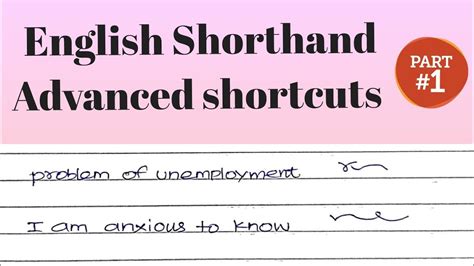 English Shorthand
Advanced shortcuts
PART
#1
problem of unemployment
I am anxious to know